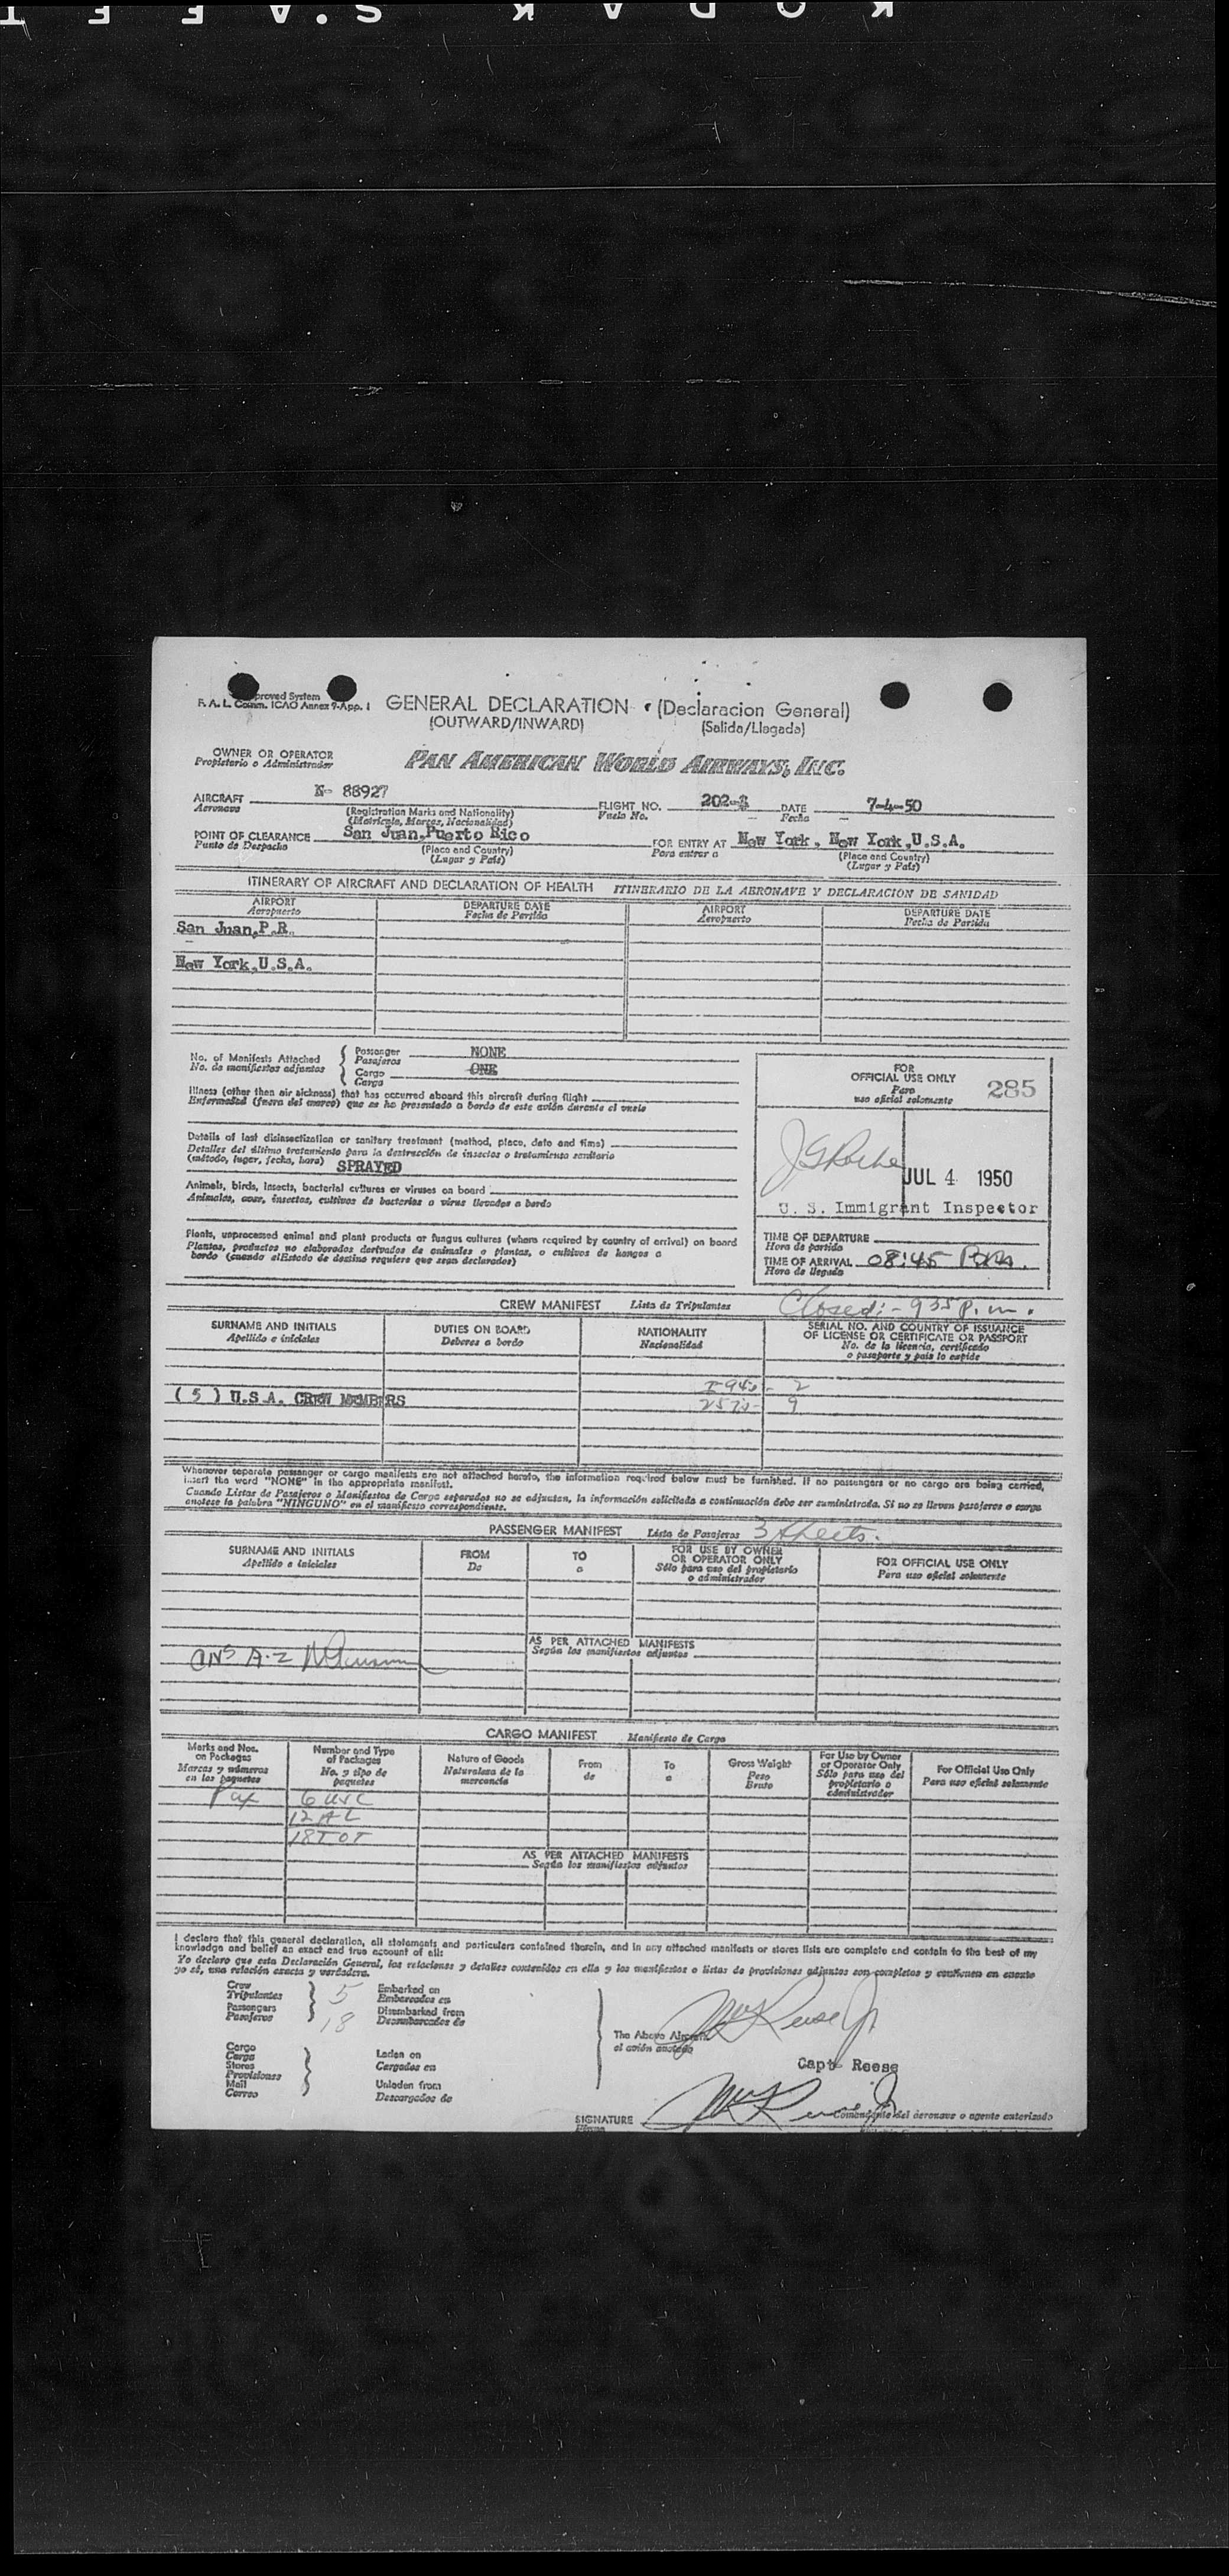 KODAK S.AFETY
Approved System
F. A. L. Comm. ICAO Annex 9-App. I
GENERAL DECLARATION • (Declaracion General)
(OUTWARD/INWARD) (Salida/Llegada)
OWNER OR OPERATOR
Propietario o Administrador
PAN AMERICAN WORLD AIRWAYS, INC.
AIRCRAFT N- 88927 FLIGHT NO. 202- DATE 7-4-50
Aeronave (Registration Marks and Nationality) Vuelo No. Fecha
(Matrícula, Marcas, Nacionalidad)
POINT OF CLEARANCE San Juan,Puerto Rico FOR ENTRY AT New York, New York,U.S.A.
Punto de Despacho (Place and Country) Para entrar a (Place and Country)
(Lugar y País) (Lugar y País)
ITINERARY OF AIRCRAFT AND DECLARATION OF HEALTH ITINERARIO DE LA AERONAVE Y DECLARACION DE SANIDAD
AIRPORT DEPARTURE DATE AIRPORT DEPARTURE DATE
Aeropuerto Fecha de Partida Aeropuerto Fecha de Partida
San Juan,P.R.
New York,U.S.A.
No. of Manifests Attached Passenger NONE
No. de manifiestos adjuntos Pasajeros
Cargo ONE
Carga
Illness (other than air sickness) that has occurred aboard this aircraft during flight
Enfermedad (fuera del mareo) que se ha presentado a bordo de este avión durante el vuelo
Details of last disinsectization or sanitary treatment (method, place, date and time)
Detalles del último tratamiento para la destrucción de insectos o tratamiento sanitario
(método, lugar, fecha, hora) SPRAYED
Animals, birds, insects, bacterial cultures or viruses on board
Animales, aves, insectos, cultivos de bacterias o virus llevados a bordo
Plants, unprocessed animal and plant products or fungus cultures (where required by country of arrival) on board
Plantas, productos no elaborados derivados de animales o plantas, o cultivos de hongos a
bordo (cuando el Estado de destino requiere que sean declarados)
FOR
OFFICIAL USE ONLY 285
Para
uso oficial solamente
JUL 4 1950
U. S. Immigrant Inspector
TIME OF DEPARTURE
Hora de partida
TIME OF ARRIVAL 08:45 P.M.
Hora de llegada
Closed:- 9 35 p.m.
CREW MANIFEST Lista de Tripulantes
SURNAME AND INITIALS DUTIES ON BOARD NATIONALITY SERIAL NO. AND COUNTRY OF ISSUANCE
Apellido e iniciales Deberes a bordo Nacionalidad OF LICENSE OR CERTIFICATE OR PASSPORT
No. de la licencia, certificado
o pasaporte y país lo expide
I-94s - 2
(5) U.S.A. CREW MEMBERS 257s- 9
Whenever separate passenger or cargo manifests are not attached hereto, the information required below must be furnished. If no passengers or no cargo are being carried,
insert the word "NONE" in the appropriate manifest.
Cuando Listas de Pasajeros o Manifiestos de Carga separados no se adjuntan, la información solicitada a continuación debe ser suministrada. Si no se llevan pasajeros o carga
anotese la palabra "NINGUNO" en el manifiesto correspondiente.
PASSENGER MANIFEST Lista de Pasajeros 3 sheets.
SURNAME AND INITIALS FROM TO FOR USE BY OWNER FOR OFFICIAL USE ONLY
Apellido e iniciales De a OR OPERATOR ONLY Para uso oficial solamente
Sólo para uso del propietario
o administrador
AS PER ATTACHED MANIFESTS
Según los manifiestos adjuntos
CARGO MANIFEST Manifiesto de Carga
Marks and Nos. Number and Type Nature of Goods From To Gross Weight For Use by Owner For Official Use Only
on Packages of Packages Naturaleza de la de a Peso or Operator Only Para uso oficial solamente
Marcas y números No. y tipo de mercancía Bruto Sólo para uso del
en los paquetes paquetes propietario o
administrador
Pax 6 USC
12 AL
18 TOT
AS PER ATTACHED MANIFESTS
Según los manifiestos adjuntos
I declare that this general declaration, all statements and particulars contained therein, and in any attached manifests or stores lists are complete and contain to the best of my
knowledge and belief an exact and true account of all:
Yo declaro que esta Declaración General, las relaciones y detalles contenidos en ella y los manifiestos o listas de provisiones adjuntos son completos y contienen en cuanto
yo sé, una relación exacta y verdadera.
Crew 5 Embarked on
Tripulantes Embarcados en
Passengers 18 Disembarked from
Pasajeros Desembarcados de
The Above Aircraft
el avión anotado
Cargo Laden on
Carga Cargados en
Stores
Provisiones
Mail Unladen from
Correo Descargados de
Capt. Reese
SIGNATURE Comandante del aeronave o agente autorizado
Firma